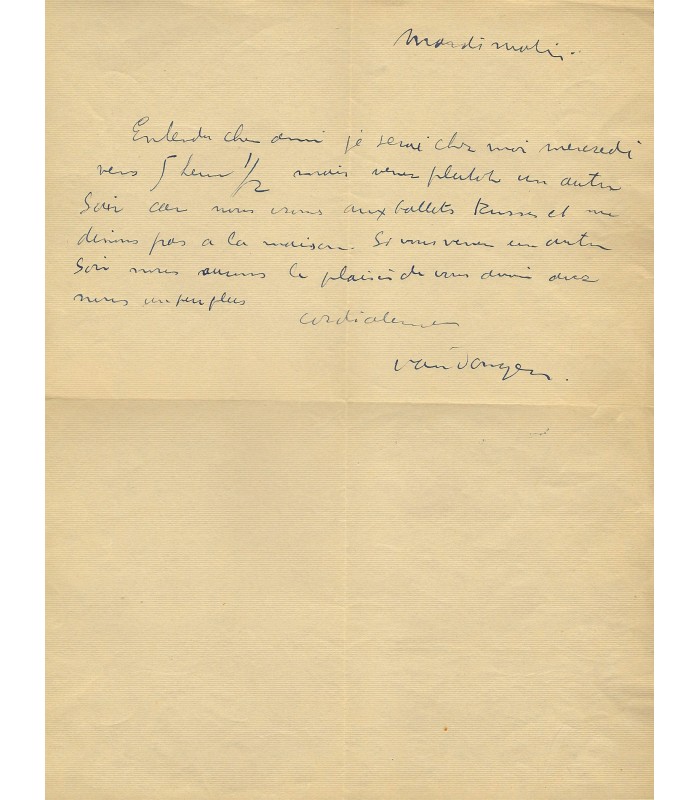 Mardi matin.
Entendu cher ami je serai chez moi mercredi
vers 5 heur 1/2 mais venez plutot un autre
Soir car nous irons aux ballets Russes et ne
dinons pas a la maison. Si vous venez un autre
Soir nous aurons le plaisir de vous avoir avec
nous un peu plus
cordialement
van Dongen.